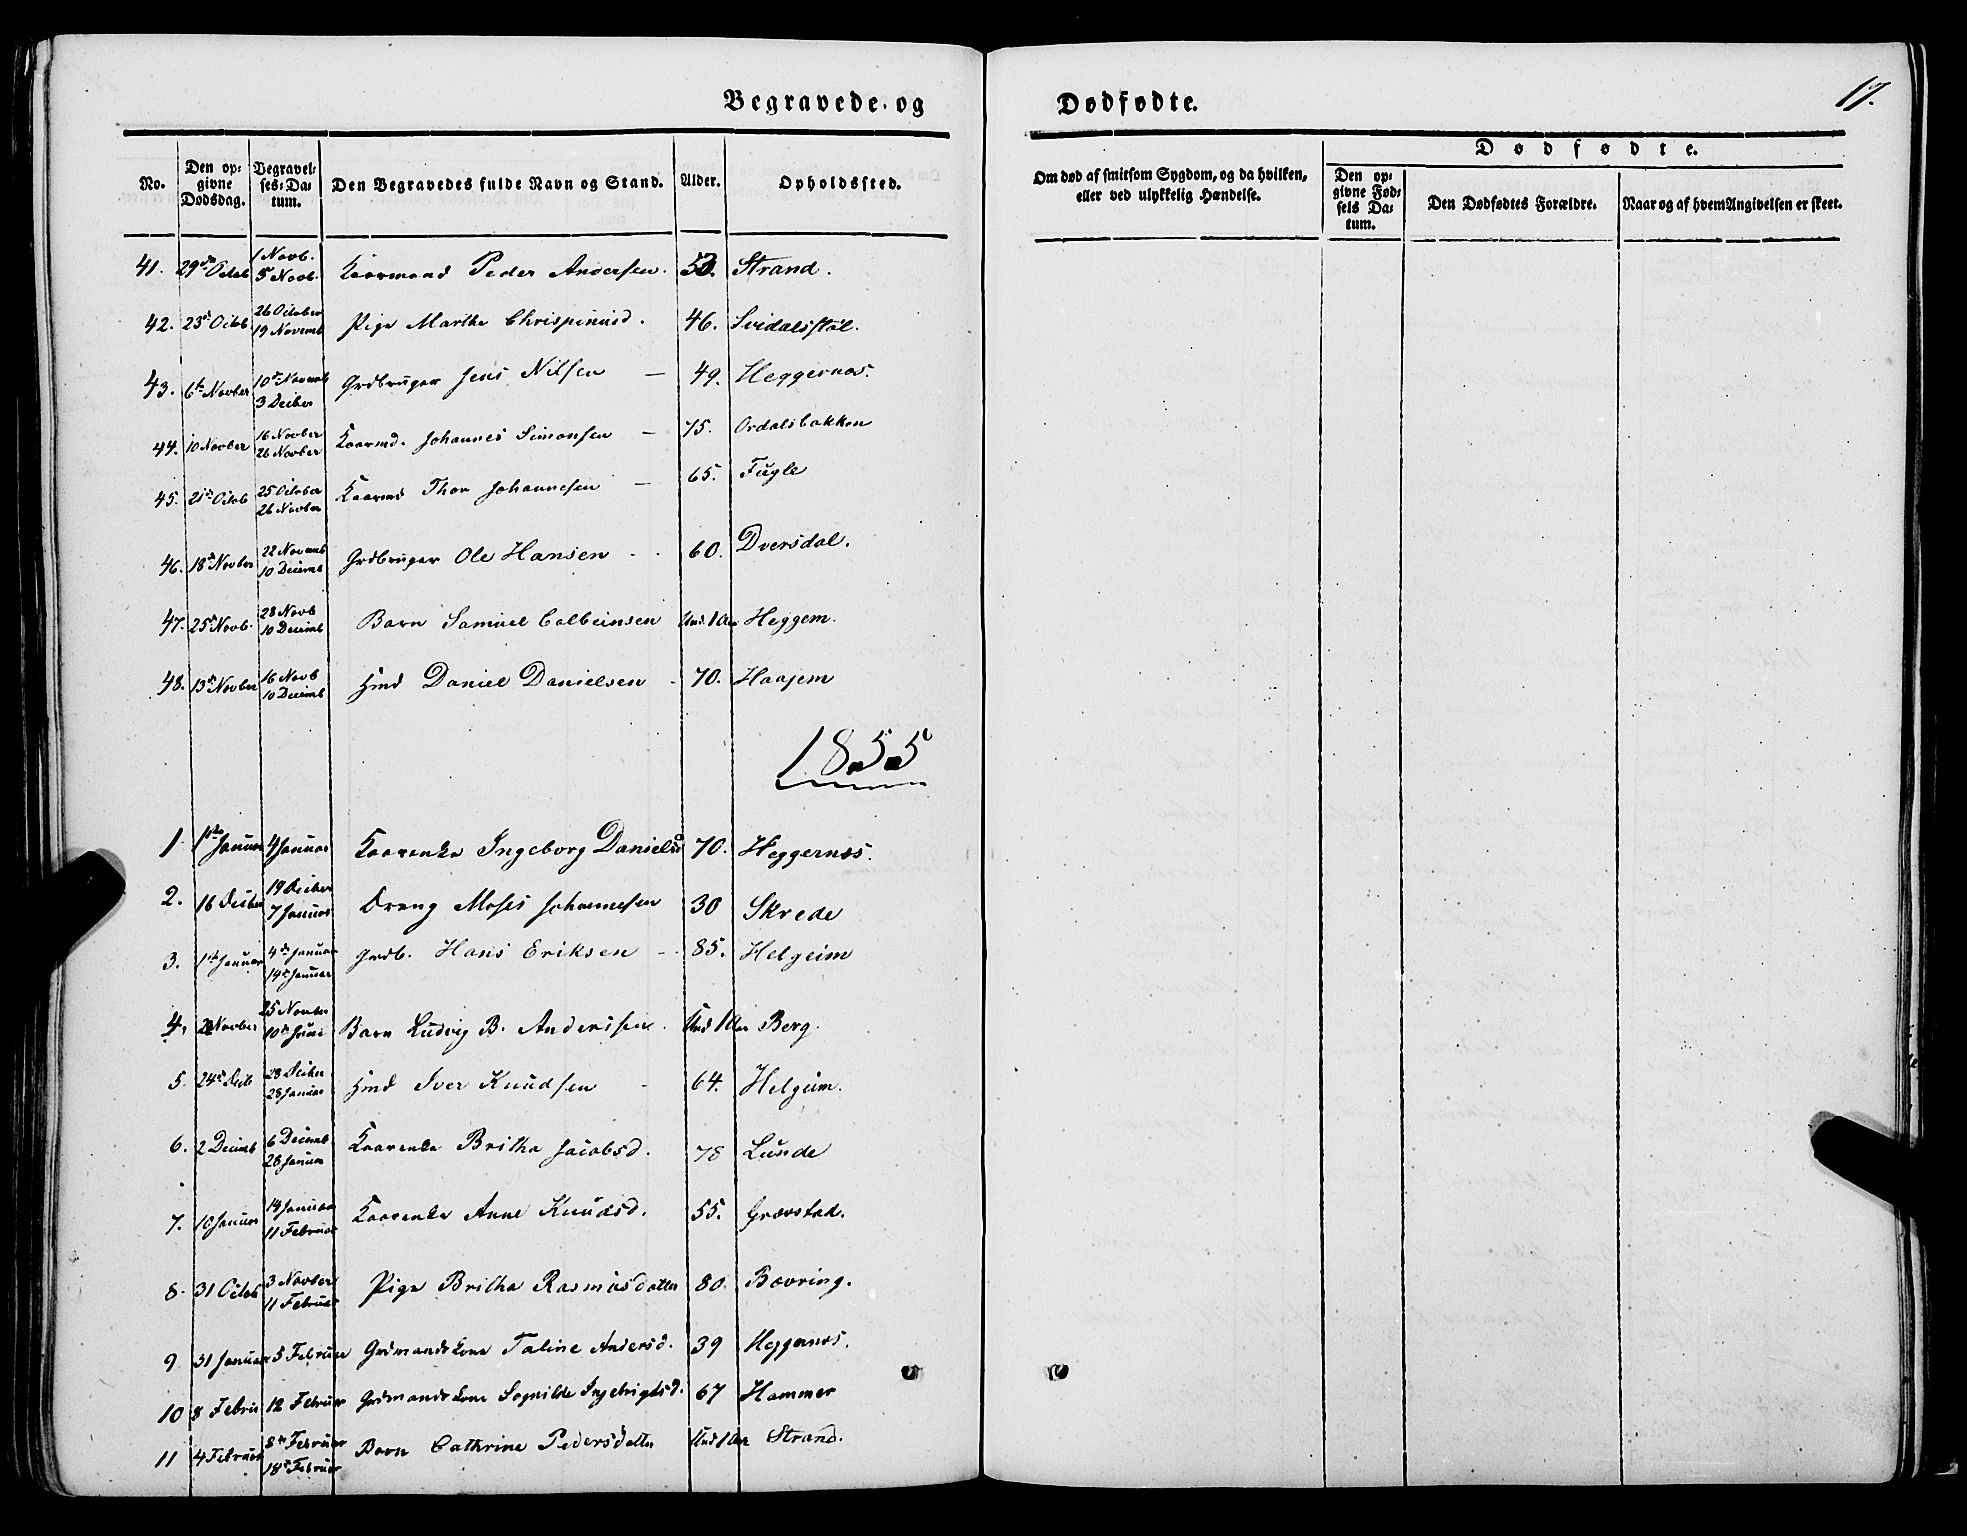 Begravede og
Dødfødte.
17.
No.
Den opgivne Dødsdag.
Begravelses-Datum.
Den Begravedes fulde Navn og Stand.
Alder.
Opholdssted.
Om død af smitsom Sygdom, og da hvilken, eller ved ulykkelig Hændelse.
Dødfødte.
Den opgivne Fødsels Datum.
Den Dødfødtes Forældre.
Naar og af hvem Angivelsen er skeet.
41. 29de Octob 1 Novb. 5 Novb. Kaarmand Peder Andersen. Strand.
42. 23de Octob 26 October 19 Novemb Pige Marthe Chrispinusd. 46. Svidalsstøl.
43. 6te Novber 10de Novemb 3 Decber Grdbruger Jens Nilsen — 49. Heggernæs.
44. 10 Novber 16 Novber 26 Novber Kaarmd. Johannes Simonsen — 75. Ordalsbakken
45. 21de Octob 25 October 26 Novber Kaarmd Thor Johannesen — 65. Fugle
46. 18de Novber 22 Novemb 10 Decemb Grdbruger Ole Hansen 60. Dversdal.
47. 25de Novb. 28 Novb 10 Decemb Barn Samuel Colbeinsen Und. 1 Aar Heggem.
48. 13de Novber 16 Novb 10 Decemb Hmd Daniel Danielsen 70. Haajem
1855
1. 1ste Januar 4 Januar Kaarenke Ingeborg Danielsd 70. Heggernæs.
2. 16 Decber 19 Decber 7 Januar Dreng Moses Johannesen 30 Skrede
3. 1ste Januar 4de Januar 14de Januar Grdb. Hans Eriksen 85. Helgeim
4. Novber 25 Novber 10de Barn Ludvig B. Andersen. Und 1 Aar Berg.
5. 24de Decb 28 Decber 28 Januar Hmd Iver Knudsen 64. Helgeim.
6. 2 Decemb 6 Decemb 28 Januar Kaarenke Britha Jacobsd. 78 Lunde
7. 10 Januar 14 Januar 11 Februar Kaarenke Anne Knudsd. 55. Grøvstad.
8. 31 Octob 3 Novber 11 Februar Pige Britha Rasmusdatter 80. Bævring.
9 31 Januar 5 Februar Grdmands Kone Taline Andersd. 39 Heggernæs.
10 8 Febru 12 Februar Grdmands Kone Sognilde 67 Hammer
11 4 Februar 8de Februar 18de Februar Barn Cathrine Pedersdatter Und 1 Aar Strand.